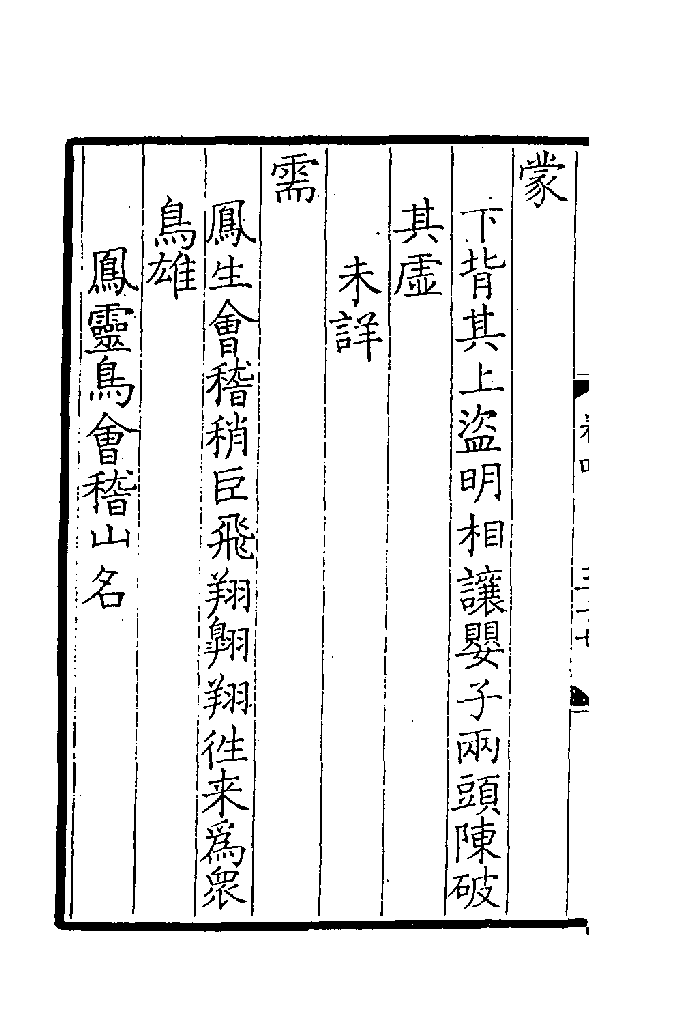 蒙
下背其上盜明相讓嬰子兩頭陳破
其虛
未詳
需
鳳生會稽稍巨飛翔翺翔徃来爲衆
鳥雄
鳳靈鳥會稽山名